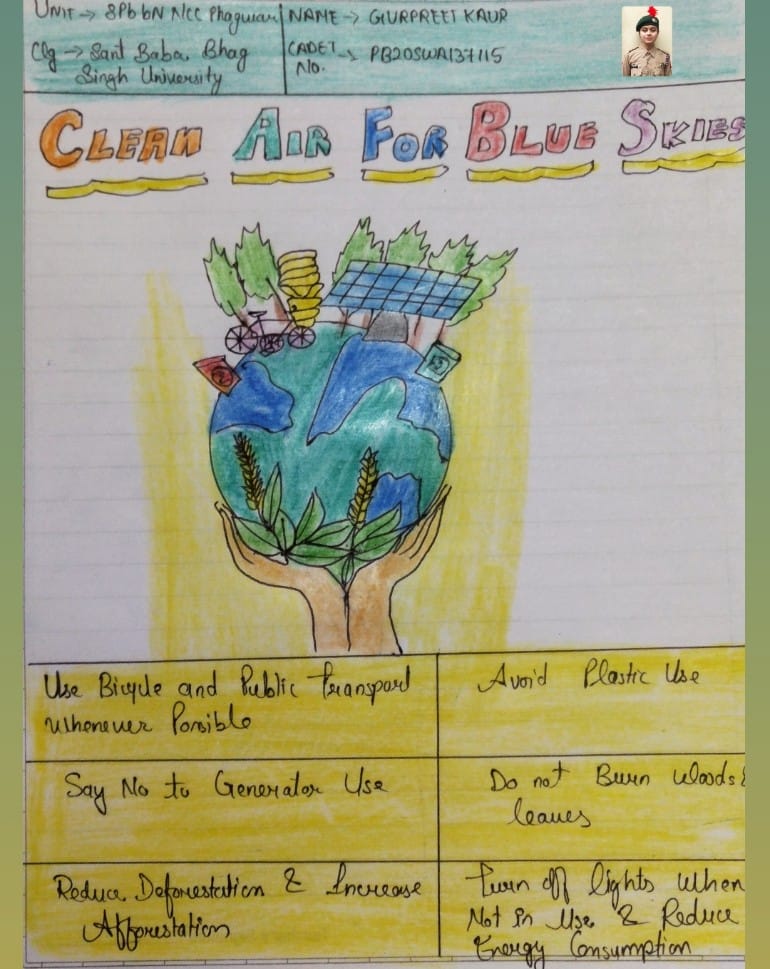 UNIT → 8Pb bN NCC Phagwara
NAME → GURPREET KAUR
Clg → Sant Baba Bhag
Singh University
CADET → PB20SWA137115
No.
CLEAN AIR FOR BLUE SKIES
Use Bicycle and Public Transport
Whenever Possible
Avoid Plastic Use
Say No to Generator Use
Do not Burn Woods &
leaves
Reduce Deforestation & Increase
Afforestation
Turn off lights When
Not in Use & Reduce
Energy Consumption